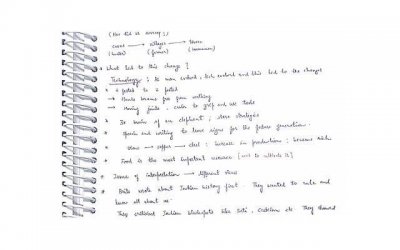 (How did it happen?)
cave → village → town
(hunter) (farmer) (townsman)
* What led to this change?
Technology : As man evolved, tech evolved and this led to the changes
* 4 footed to 2 footed
→ brain
→ Moving joints, easier to grip and use tools
* strategies
* Speech and writing to leave signs for the future generation
* stone → copper → steel : increase in production : became rich
* Food is the most important resource
* Issue of interpretation → different views
* Brits wrote about Indian history first. They wanted to rule and
know all about us
They criticised Indian like Sati, Casteism etc. They showed